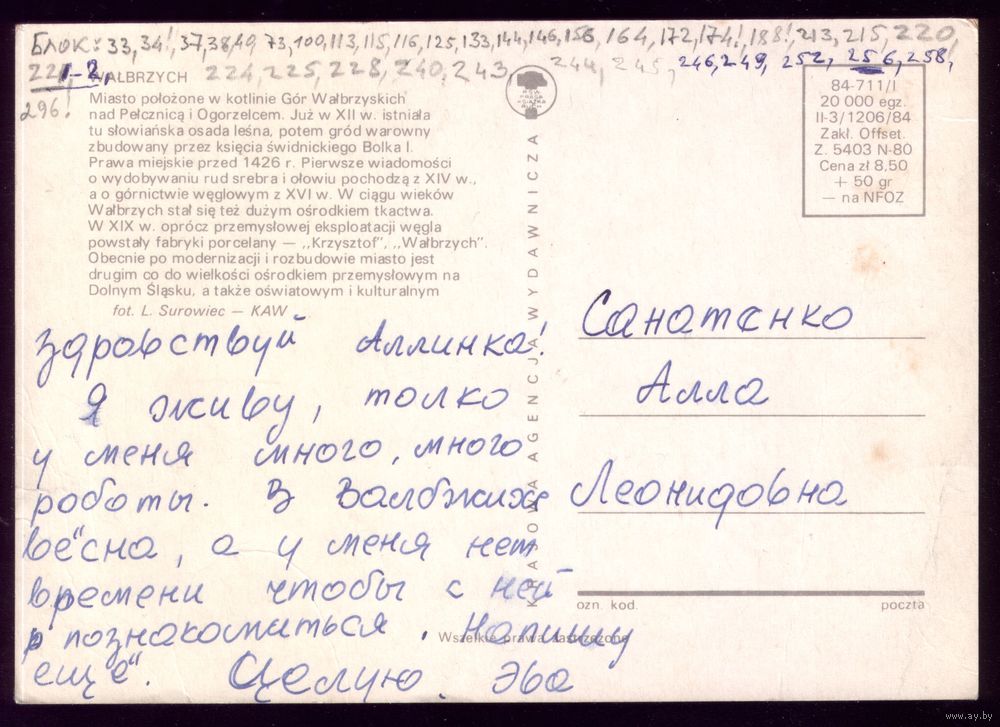 Блок: 33, 34!, 37, 38, 49, 73, 100, 113, 115, 116, 125, 133, 144, 146, 156, 164, 172, 174!, 188!, 213, 215, 220,
1-2, 224, 225, 228, 240, 243, 244, 245, 246, 249, 252, 256, 258,
296!
WAŁBRZYCH
Miasto położone w kotlinie Gór Wałbrzyskich
nad Pełcznicą i Ogorzelcem. Już w XII w. istniała
tu słowiańska osada leśna, potem gród warowny
zbudowany przez księcia świdnickiego Bolka I.
Prawa miejskie przed 1426 r. Pierwsze wiadomości
o wydobywaniu rud srebra i ołowiu pochodzą z XIV w.,
a o górnictwie węglowym z XVI w. W ciągu wieków
Wałbrzych stał się też dużym ośrodkiem tkactwa.
W XIX w. oprócz przemysłowej eksploatacji węgla
powstały fabryki porcelany — „Krzysztof”, „Wałbrzych”.
Obecnie po modernizacji i rozbudowie miasto jest
drugim co do wielkości ośrodkiem przemysłowym na
Dolnym Śląsku, a także oświatowym i kulturalnym
fot. L. Surowiec — KAW
Здравствуй Аллинка!
Я живу, толко
у меня много, много
роботы. В Валбжихе
вёсна, а у меня нет
времени чтобы с ней
познакомиться. Напишу
ещё. Целую. Эва
KRAJOWA AGENCJA WYDAWNICZA
RSW
PRASA
KSIĄŻKA
RUCH
84-711/I
20 000 egz.
II-3/1206/84
Zakł. Offset.
Z. 5403 N-80
Cena zł 8,50
+ 50 gr
— na NFOZ
Санатенко
Алла
Леонидовна
ozn. kod. poczta
Wszelkie prawa zastrzeżone
www.ay.by